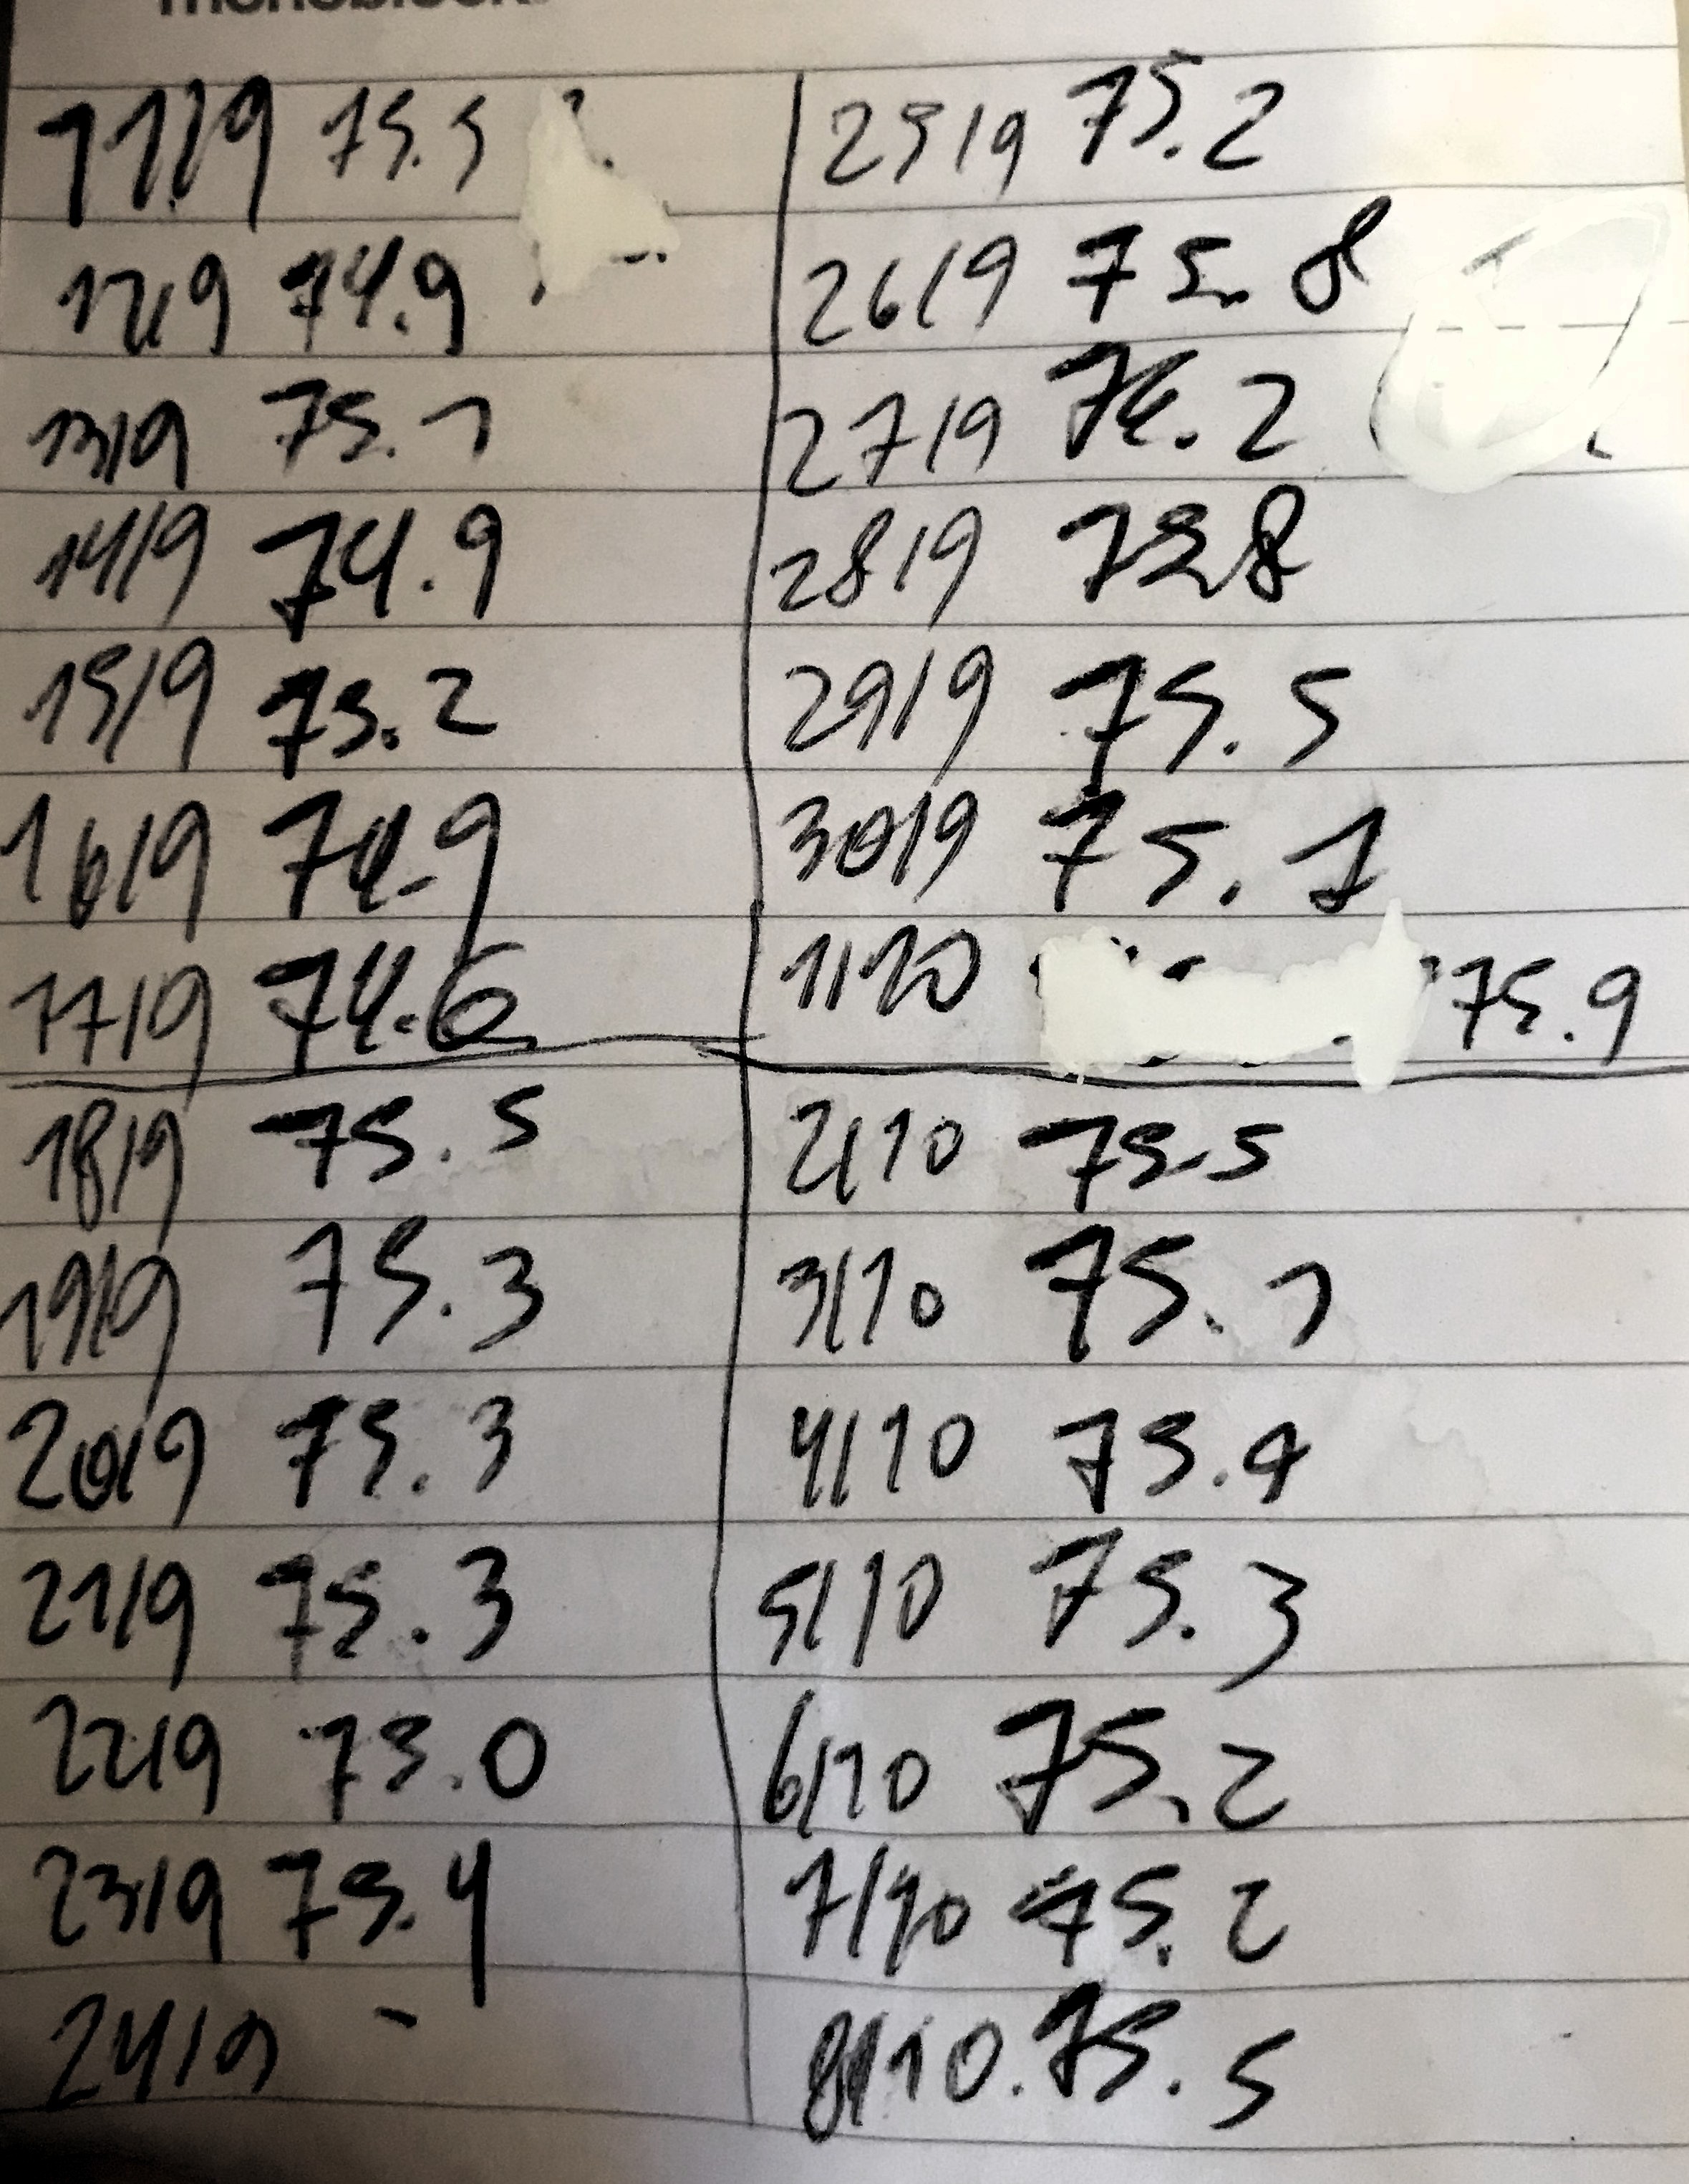 11/9 75.5
12/9 74.9
13/9 75.1
14/9 74.9
15/9 75.2
16/9 74.9
17/9 74.6
18/9 75.5
19/9 75.3
20/9 75.3
21/9 75.3
22/9 75.0
23/9 75.4
24/9 -
25/9 75.2
26/9 75.8
27/9 74.2
28/9 75.8
29/9 75.5
30/9 75.1
1/10 75.9
2/10 75.5
3/10 75.1
4/10
5/10 75.3
6/10 75.2
7/10 75.2
8/10. 75.5